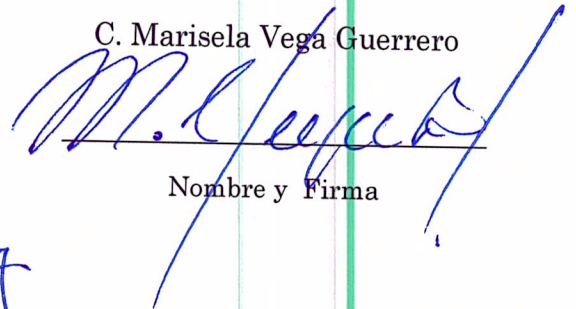 C. Marisela Vega Guerrero
M. Vega
Nombre y Firma